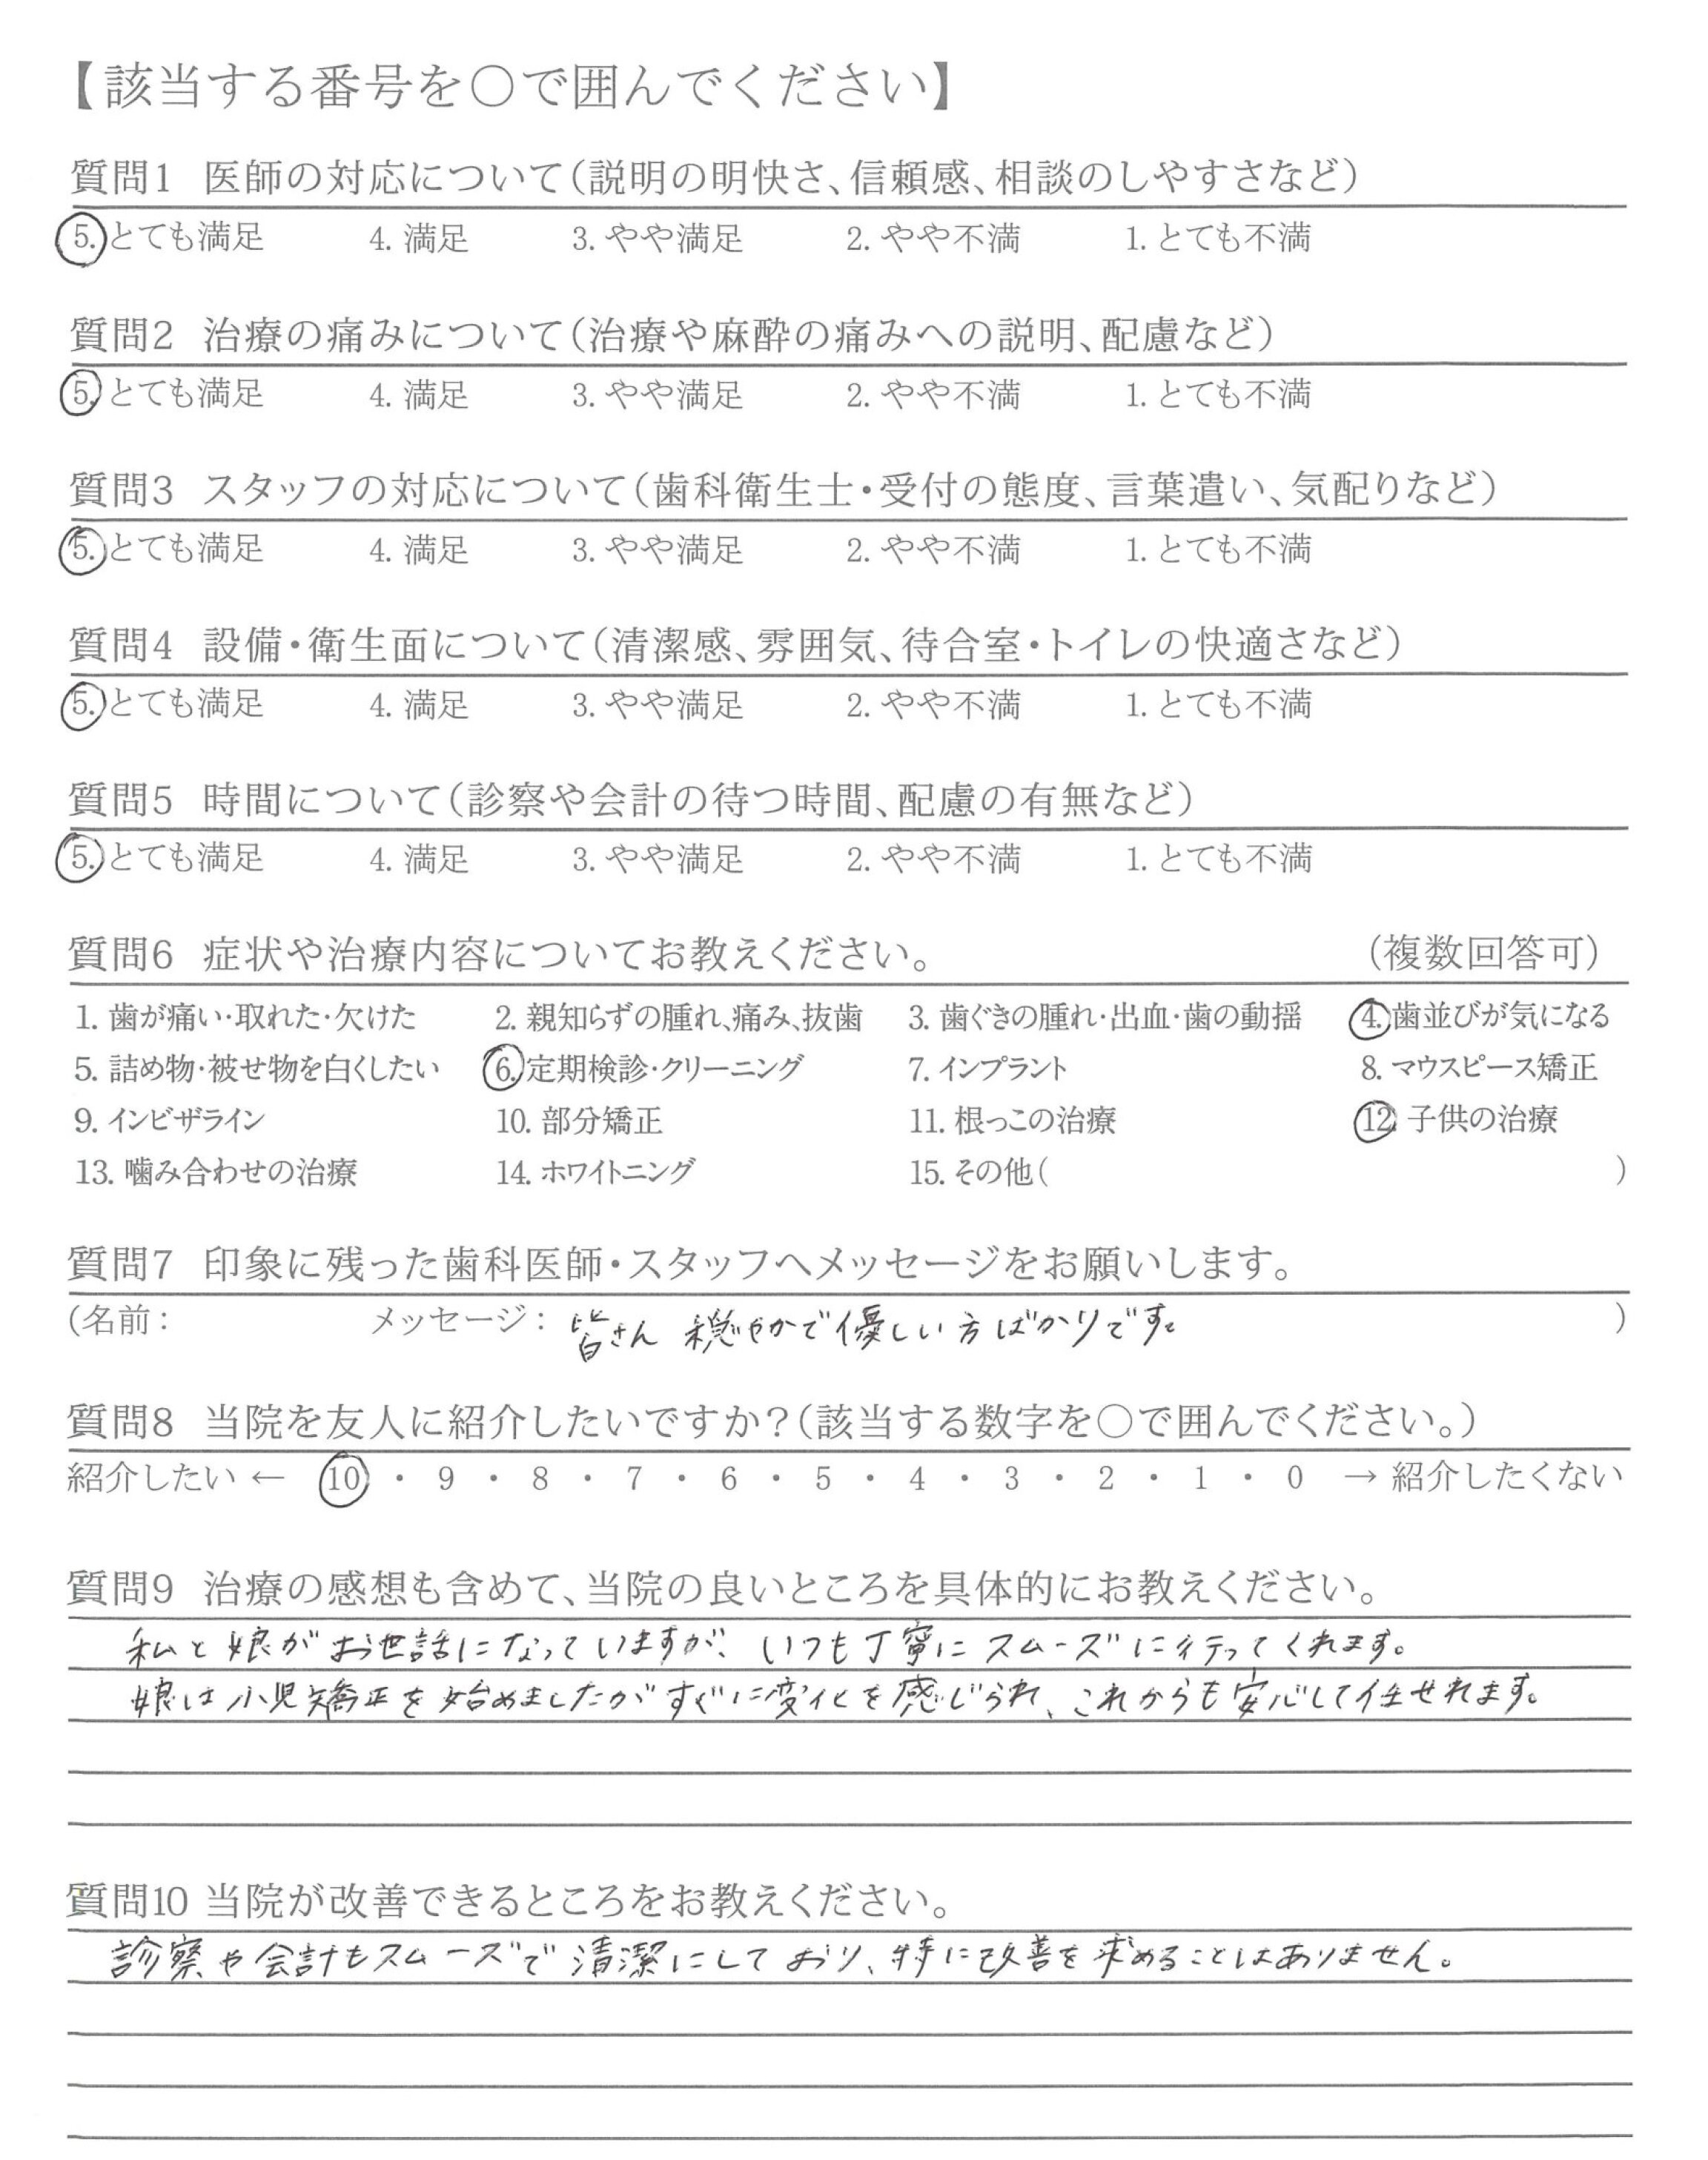 【該当する番号を○で囲んでください】
質問1 医師の対応について（説明の明快さ、信頼感、相談のしやすさなど）
5. とても満足 4. 満足 3. やや満足 2. やや不満 1. とても不満
質問2 治療の痛みについて（治療や麻酔の痛みへの説明、配慮など）
5. とても満足 4. 満足 3. やや満足 2. やや不満 1. とても不満
質問3 スタッフの対応について（歯科衛生士・受付の態度、言葉遣い、気配りなど）
5. とても満足 4. 満足 3. やや満足 2. やや不満 1. とても不満
質問4 設備・衛生面について（清潔感、雰囲気、待合室・トイレの快適さなど）
5. とても満足 4. 満足 3. やや満足 2. やや不満 1. とても不満
質問5 時間について（診察や会計の待つ時間、配慮の有無など）
5. とても満足 4. 満足 3. やや満足 2. やや不満 1. とても不満
質問6 症状や治療内容についてお教えください。 （複数回答可）
1. 歯が痛い・取れた・欠けた 2. 親知らずの腫れ、痛み、抜歯 3. 歯ぐきの腫れ・出血・歯の動揺 4. 歯並びが気になる
5. 詰め物・被せ物を白くしたい 6. 定期検診・クリーニング 7. インプラント 8. マウスピース矯正
9. インビザライン 10. 部分矯正 11. 根っこの治療 12. 子供の治療
13. 噛み合わせの治療 14. ホワイトニング 15. その他（ ）
質問7 印象に残った歯科医師・スタッフへメッセージをお願いします。
（名前： メッセージ： 皆さん 穏やかで優しい方ばかりです。 ）
質問8 当院を友人に紹介したいですか？（該当する数字を○で囲んでください。）
紹介したい ← 10 ・ 9 ・ 8 ・ 7 ・ 6 ・ 5 ・ 4 ・ 3 ・ 2 ・ 1 ・ 0 → 紹介したくない
質問9 治療の感想も含めて、当院の良いところを具体的にお教えください。
私と娘がお世話になっていますが、いつも丁寧にスムーズに行ってくれます。
娘は小児矯正を始めましたがすぐに変化を感じられ、これからも安心して任せれます。
質問10 当院が改善できるところをお教えください。
診察や会計もスムーズで清潔にしており、特に改善を求めることはありません。